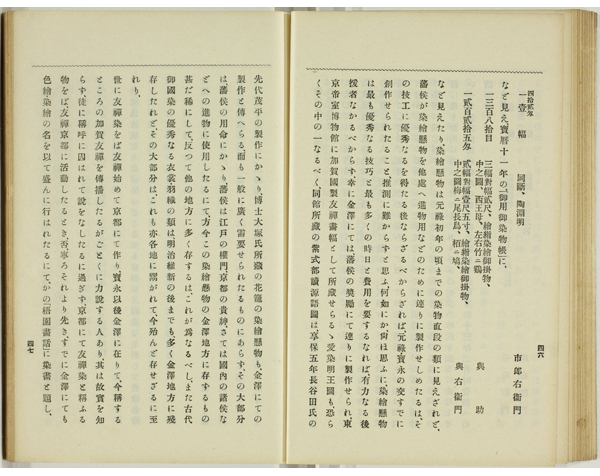 四拾貳匁
一壹幅　同斷、陶淵明　市郎右衞門
など見え、寶曆十一年の『御用御染物帳』に、
一三百八拾目　三幅對幅貳尺、繪絹染繪御掛物、
中之圖、西王母、左右竹ニ鷄　與助
一貳百貳拾五匁　貳幅對幅壹尺五寸、繪絹染繪御掛物、
中之圖梅ニ尾長鳥、栢ニ鳩、　與右衞門
など見えたり、染繪懸物は元祿初年の頃までの染物直段の類に見えざれど、
藩侯が染繪懸物を他處へ進物用などのために連りに製作せしめたるは、そ
の技工に優秀なるを得る後ならざるべからざれば、元祿寶永の交すでに
創作せられたること、推測に難からずと思ふ、何如にか宵は思ふに染繪懸物
は最も優秀なる技巧と最も多くの時日と費用を要するなれば有力なる後
援者なかるべからず、幸に金澤にては藩侯の奬勵にて連りに製作せられ、東
京帝室博物館に加賀國製友禪畫幅として所藏せらるゝ愛染明王圖も、恐ら
くその中の一なるべく、同館所藏の紫式部讀源語圖は享保五年長谷田氏の
四六
先代茂平の製作にかゝり、博士大塚氏所藏の花籠の染繪懸物も、金澤にての
製作と傳へらる、而も一般に廣く需要せられたるものにあらず、その大部分
は、藩侯の用命にかゝり、藩侯は江戶の權門、京都の貴紳、さては國內の諸侯な
どへの進物に使用したるにて、方今この染繪懸物の金澤地方に存するもの
甚だ稀にして、反つて他の地方に多く存するは、これが爲なるべし、また古代
御國染の優秀なる衣裳羽織の類は明治維新の後までも、多く金澤地方に殘
存したれど、その大部分は、これも亦各地に需がれて、今殆んど存せざるに至
れり、
世に友禪染をば友禪始めて京都にて作り寶永以後金澤に在りて、今稱する
ところの加賀友禪を傳播したるがごとくに力說する人あり、其は故實を知
らず、徒に稱呼に囚はれて說をなしたるに過ぎず、京都にて友禪染と稱ふる
物をば、友禪京都に活動したるとき、否寧ろそれより先き、すでに金澤にても
色繪、染繪の名を以て盛んに行はれたるにて、かの『梧園畫話』に染畫と題し、
四七